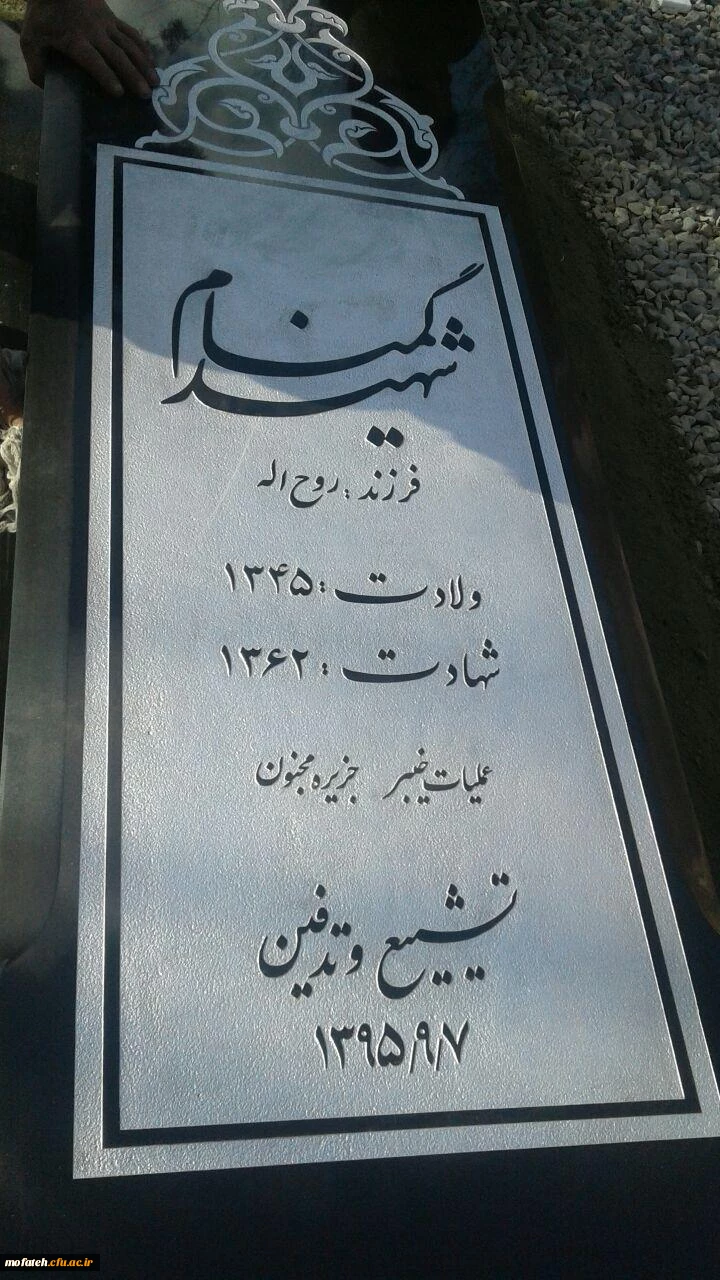 شهید گمنام
فرزند : روح اله
ولادت : ۱۳۴۵
شهادت : ۱۳۶۲
عملیات خیبر جزیره مجنون
تشییع و تدفین
۱۳۹۵/۹/۷
mofateh.cfu.ac.ir